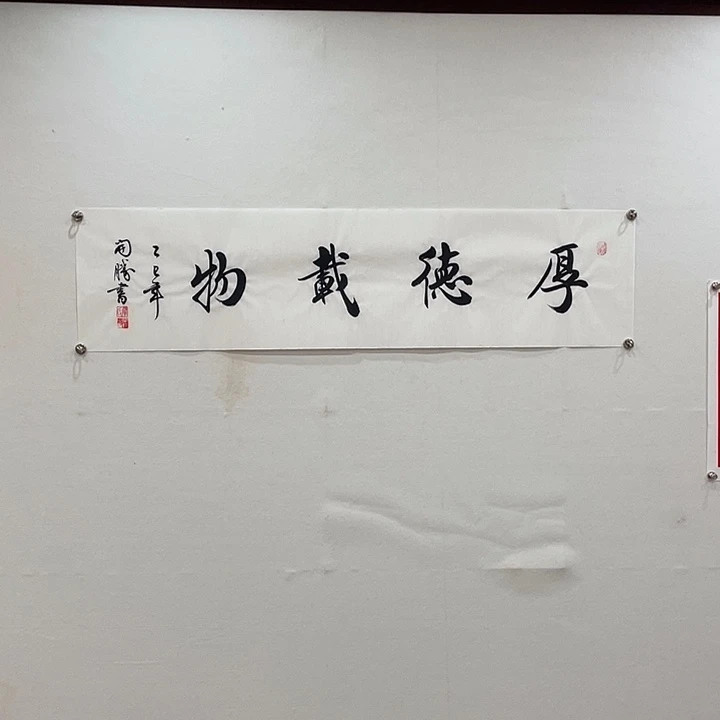 厚德載物
乙巳年
開勝書